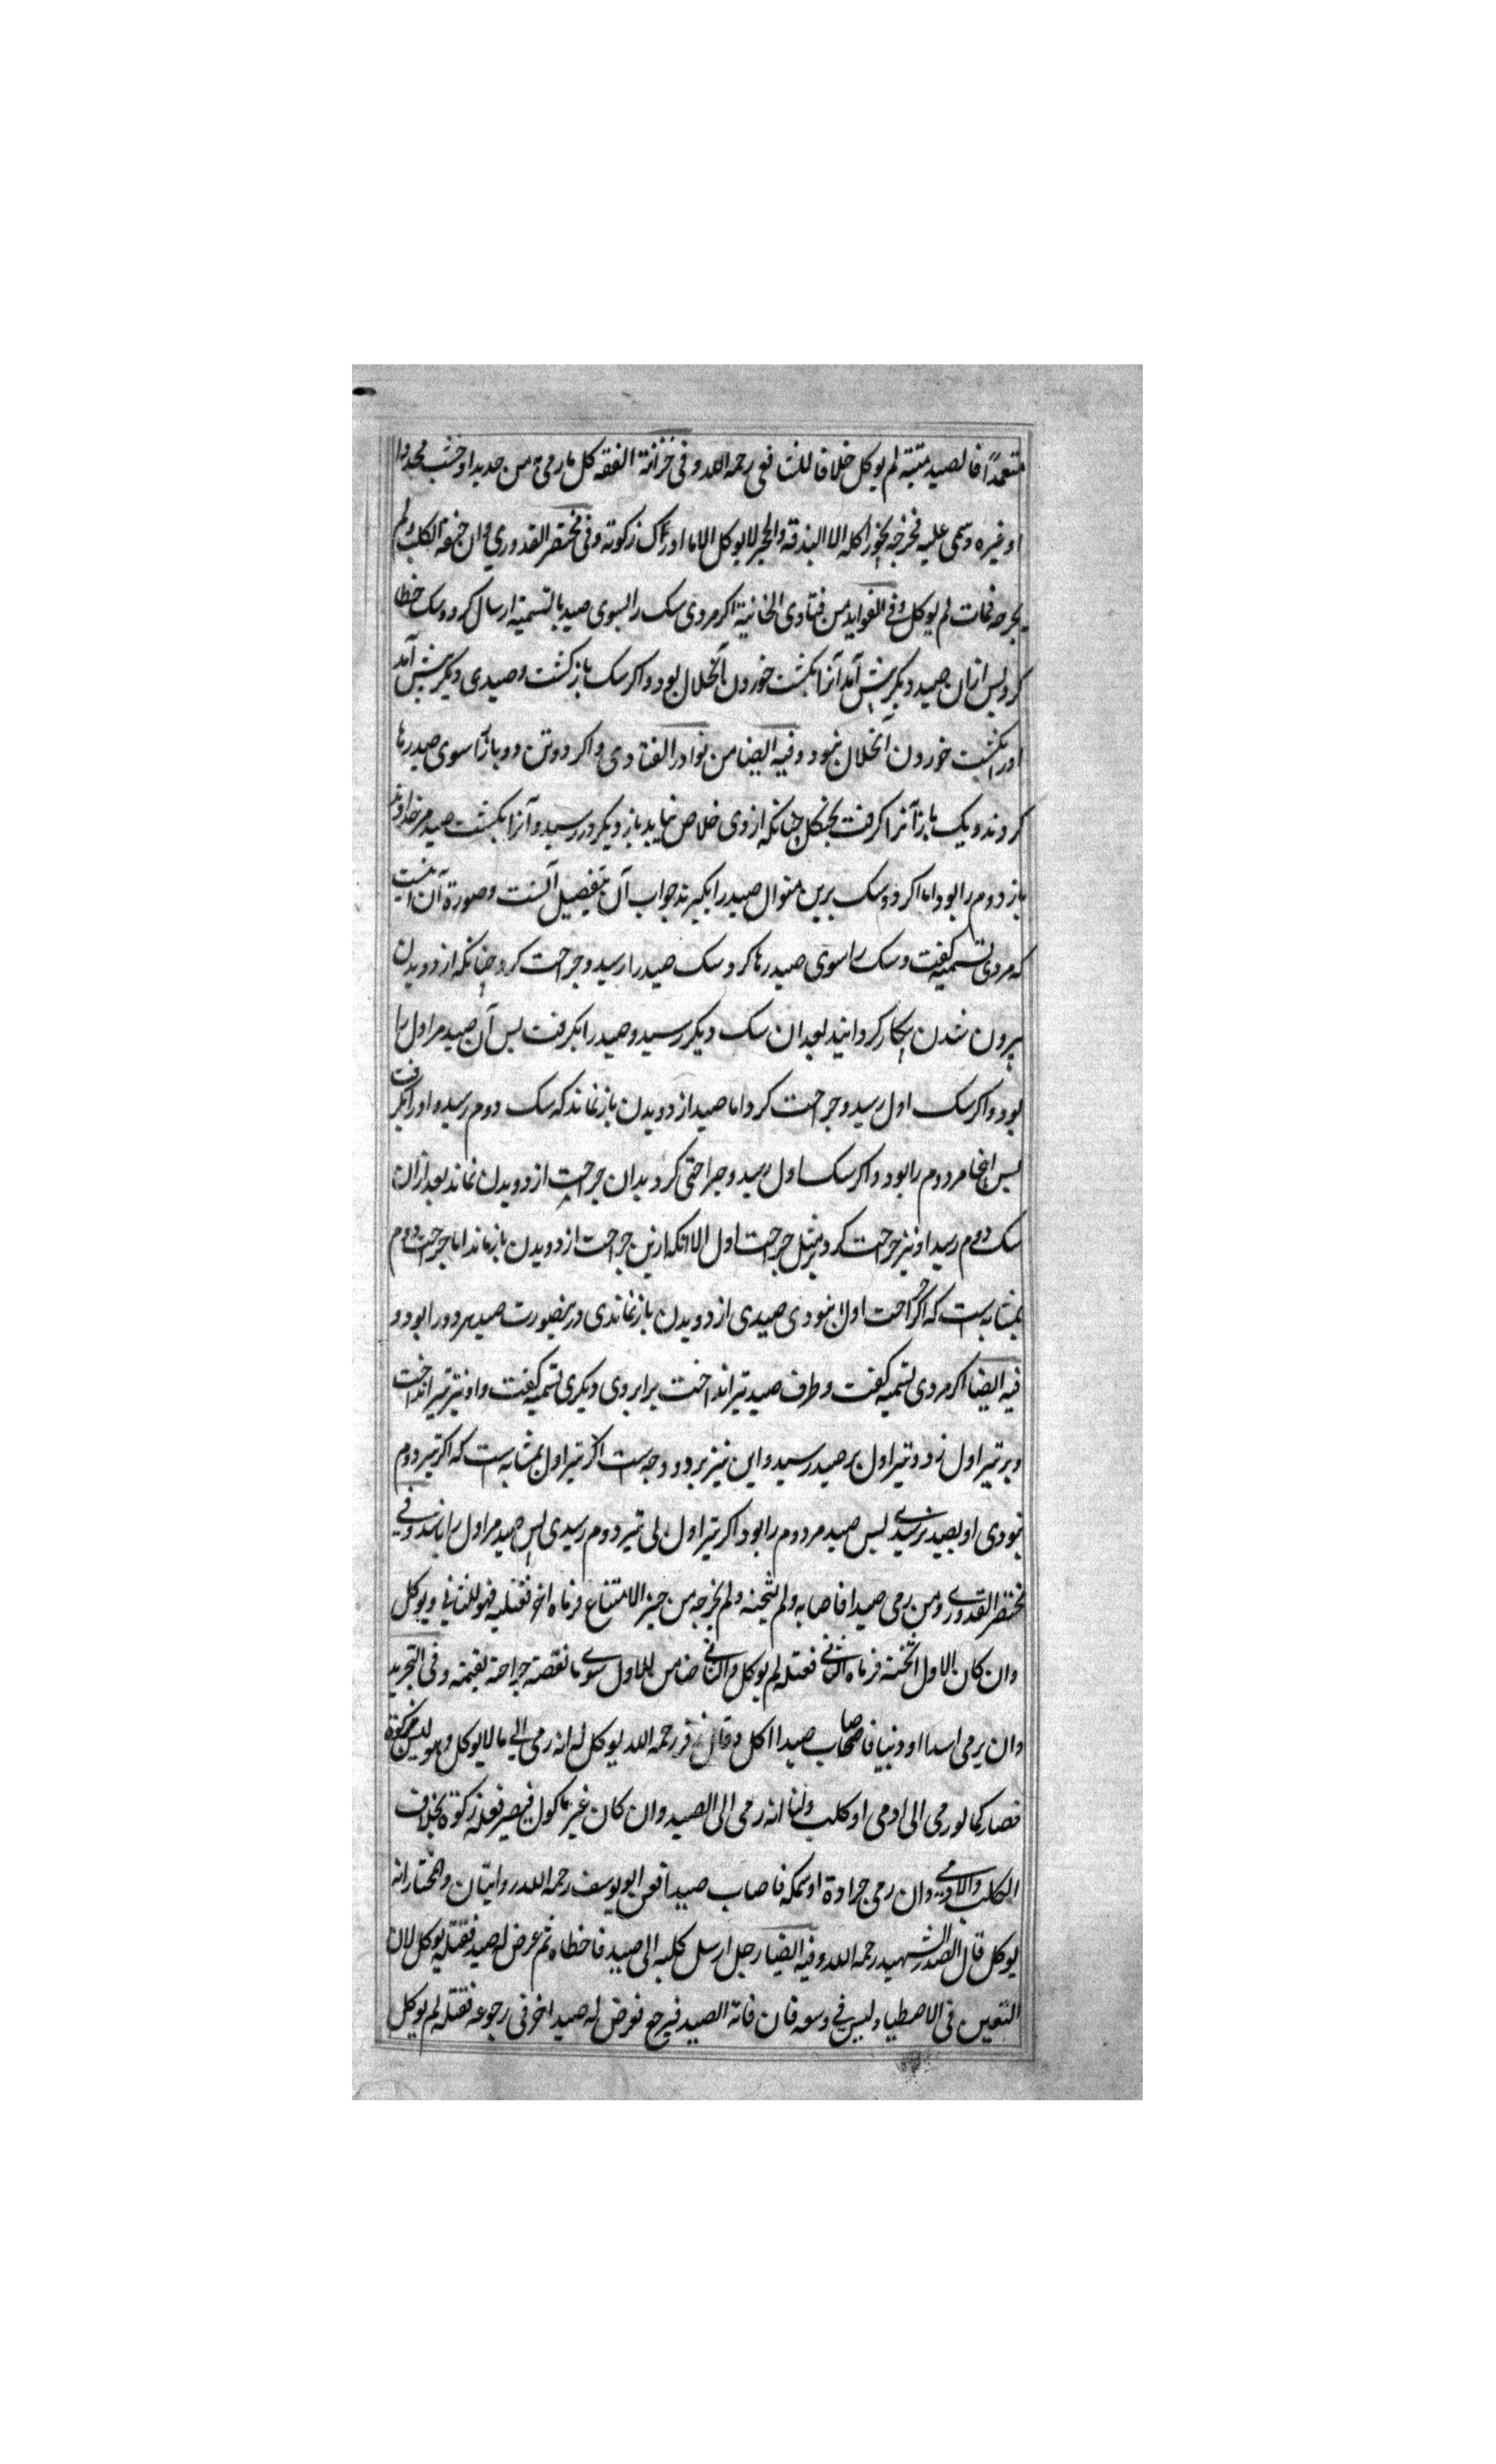 متعمدًا فالصید میتیة لم یوکل خلافا للشافعی رحمه الله و فی خزانة الفقه کل ما رمی من حدید او خشب محدد او
او غیره و سمی علیه فخرجه یجوز اکله الا البندقة والحجر لا یوکل الا ما ادرک زکوته و فی مختصر القدوری و ان خنقه الکلب و لم
یجرحه فمات لم یوکل و فی الفواید من فتاوی الخانیة اکر مردی سک را بسوی صید بالتسمیة ارسال کرد و سک خطا
کرد پس ازان صید دیکر پیش آمد آنرا بکشت خوردن آنحلال بود و اکر سک باز کشت و صیدی دیکر پیش آمد
اورا بکشت خوردن آنحلال نبود و فیه ایضا من نوادر الفتاوی و اکر دو تن دو باز را سوی صید رها
کردند و یک باز آنرا کرفت بجنکل چنانکه از وی خلاص نیابد باز دیکر در رسید و آنرا بکشت صید مر خداوند
باز دوم را بود اما اکر دو سک برین منوال صید را بکیرند جواب آن بتفصیل آنست و صورة آن اینست
که مردی تسمیه کفت و سک را سوی صید رها کرد سک صید را رسید و جراحت کرد چنانکه از دویدن
بیرون شدن بیکار کردانید بعد ان سک دیکر رسید و صید را بکرفت بس آن صید مر اول را
بود و اکر سک اول رسید و جراحت کرد اما صید از دویدن باز نماند که سک دوم رسید و اورا بکرفت
بس اینجا مر دوم را بود و اکر سک اول رسید و جراحتی کرد بدان جراحت از دویدن نماند بعد ازان
سک دوم رسید او نیز جراحت کرد بر مثل جراحت اول الا انکه ازین جراحت از دویدن باز ماند اما جراحت دوم
بمثابه است که اکر جراحت اول نبودی صیدی از دویدن باز نماندی درینصورت صید هر دو را بود و
فیه ایضا اکر مردی تسمیه کفت و طرف صید تیر انداخت برابر وی دیکری تسمیه کفت و او نیز تیر انداخت
و بر تیر اول زد و تیر اول بر صید رسید و این نیز بر دو وجه ست اکر تیر اول بمثابه ست که اکر تیر دوم
نبودی او بصید نرسیدی بس صید مر دوم را بود اکر تیر اول بی تیر دوم رسیدی بس صید مر اول را باشد و فی
مختصر القدوری و من رمی صیدا فاصابه و لم یثخنه و لم یخرجه من حیز الامتناع فرماه اخر فقتله فهو للثانی و یوکل
وان کان الاول اثخنه فرماه الثانی فقتله لم یوکل و الثانی ضامن للاول سوی ما نقصته جراحته بقیمته و فی التجرید
وان یرمی اسدا او ذئبا فاصاب صیدا اکل و قال زفر رحمه الله یوکل له انه رمی الی ما لا یوکل و هو لیس بزکوة
فصار کما لو رمی الی ادمی او کلب و لنا انه رمی الی الصید وان کان غیر ماکول فیصیر فعله زکوة بخلاف
الکلب والادمی وان رمی جرادة او سمکة فاصاب صیدا فعن ابو یوسف رحمه الله روایتان و المختار انه
یوکل قال الصدر الشهید رحمه الله و فیه ایضا رجل ارسل کلبه الی صید فاخطاه ثم عرض له صید فقتله یوکل لان
التعین فی الاصطیاد لیس فی وسعه فان فاته الصید فیرجع فعرض له صید اخر فی رجوعه فقتله لم یوکل